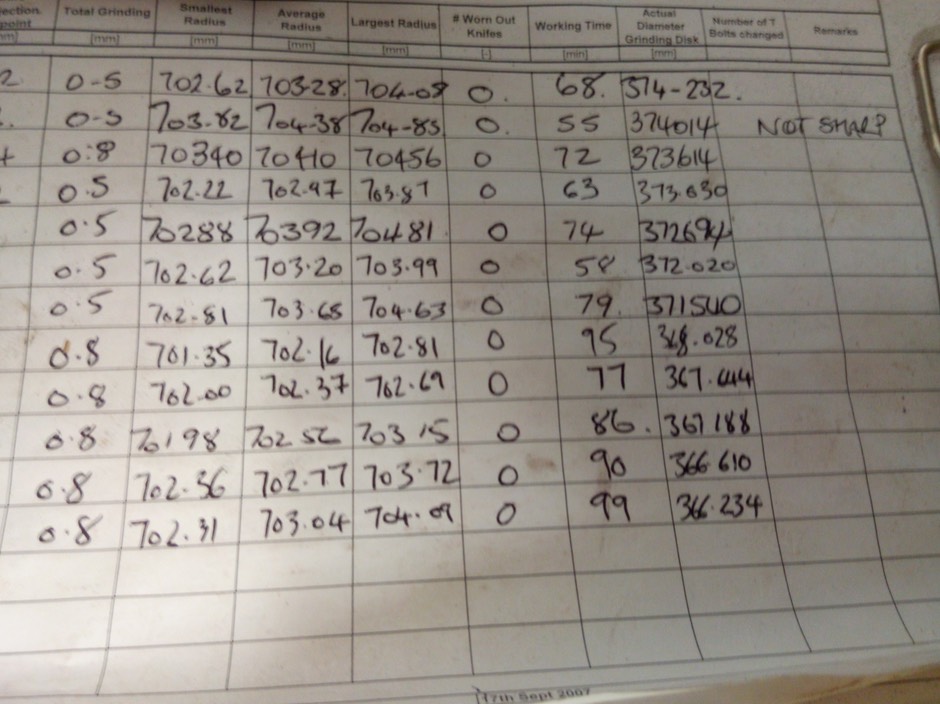 ection Total Grinding Smallest Radius Average Radius Largest Radius # Worn Out Knifes Working Time Actual Diameter Grinding Disk Number of T Bolts changed Remarks
point [mm] [mm] [mm] [mm] [-] [min] [mm]
2 0-5 702.62 703-28 704-08 0. 68. 374-232.
0-5 703-82 704-38 704-85 0. 55 374014 NOT SHARP
0.8 70340 70410 70456 0 72 373614
0.5 702.22 702.97 703.87 0 63 373.030
0.5 70288 70392 70481 0 74 372694
0.5 702.62 703.20 703.99 0 58 372.020
0.5 702.81 703.68 704.63 0 79 371540
0.8 701.35 702.16 702.81 0 95 368.028
0.8 702.00 702.37 702.69 0 77 367.444
0.8 70198 70252 70315 0 86. 367188
0.8 702.36 702.77 703.72 0 90 366.610
0.8 702.31 703.04 704.09 0 99 366.234
17th Sept 2007